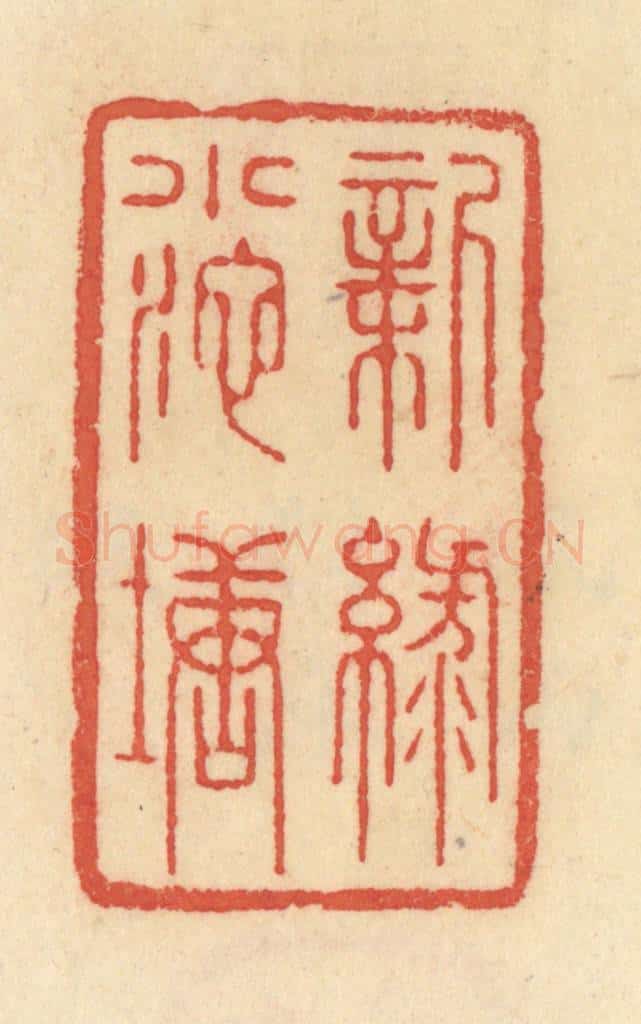 新綠
小池塘
Shufawang.CN